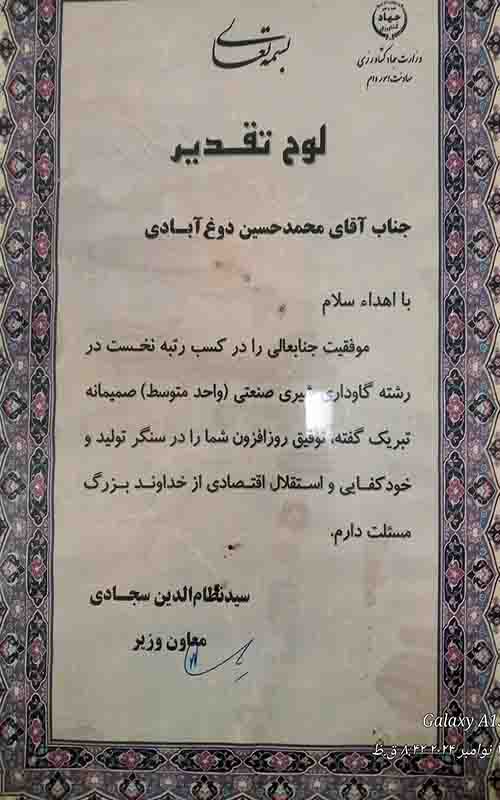 بسمه تعالی
جهاد
وزارت جهاد کشاورزی
معاونت امور دام
لوح تقدیر
جناب آقای محمدحسین دوغ‌آبادی
با اهداء سلام
موفقیت جنابعالی را در کسب رتبه نخست در
رشته گاوداری شیری صنعتی (واحد متوسط) صمیمانه
تبریک گفته، توفیق روزافزون شما را در سنگر تولید و
خودکفایی و استقلال اقتصادی از خداوند بزرگ
مسئلت دارم.
سیدنظام‌الدین سجادی
معاون وزیر
Galaxy A1
نوامبر ۲۰۲۴ ۸:۴۲ ق.ظ